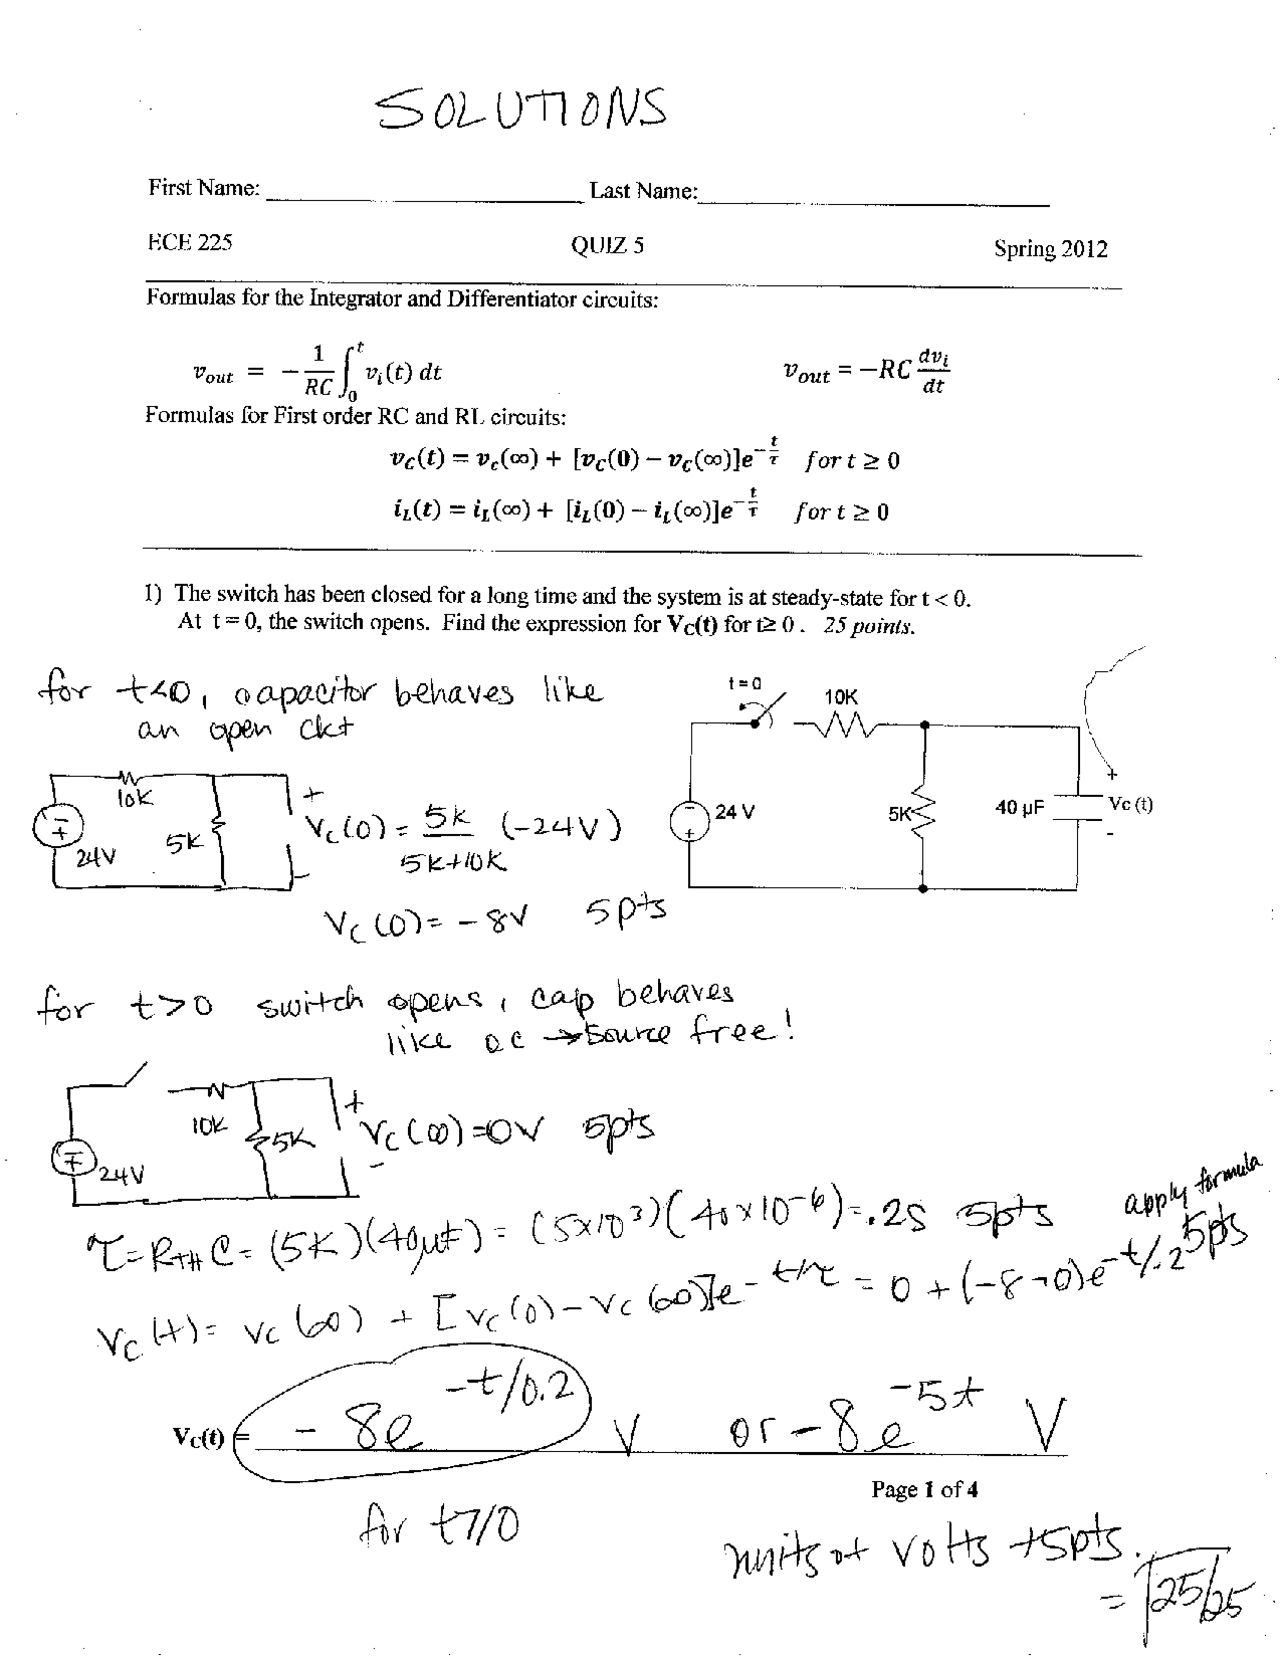 SOLUTIONS
First Name: Last Name:
ECE 225 QUIZ 5 Spring 2012
Formulas for the Integrator and Differentiator circuits:
v_out = -1/RC ∫_0^t v_i(t) dt v_out = -RC dv_i/dt
Formulas for First order RC and RL circuits:
v_C(t) = v_c(∞) + [v_C(0) - v_C(∞)]e^{-t/τ} for t ≥ 0
i_L(t) = i_L(∞) + [i_L(0) - i_L(∞)]e^{-t/τ} for t ≥ 0
1) The switch has been closed for a long time and the system is at steady-state for t < 0.
At t = 0, the switch opens. Find the expression for Vc(t) for t≥ 0 . 25 points.
for t<0, capacitor behaves like
an open ckt
t=0
10K
24 V
5K
40 µF
+
Vc (t)
-
10K
24V
5K
+
Vc(0) = 5K/(5K+10K) (-24V)
-
Vc(0) = -8V 5pts
for t>0 switch opens, cap behaves
like oc → source free!
10K
24V
5K
+
Vc(∞)=0V 5pts
-
τ = R_TH C = (5K)(40µF) = (5x10^3)(40x10^-6) = .2s 5pts
apply formula
5pts
Vc(t) = Vc(∞) + [Vc(0) - Vc(∞)]e^{-t/τ} = 0 + (-8-0)e^{-t/.2}
Vc(t) = -8e^{-t/0.2} V or -8e^{-5t} V
Page 1 of 4
for t≥0
units of volts +5pts.
= 25/25